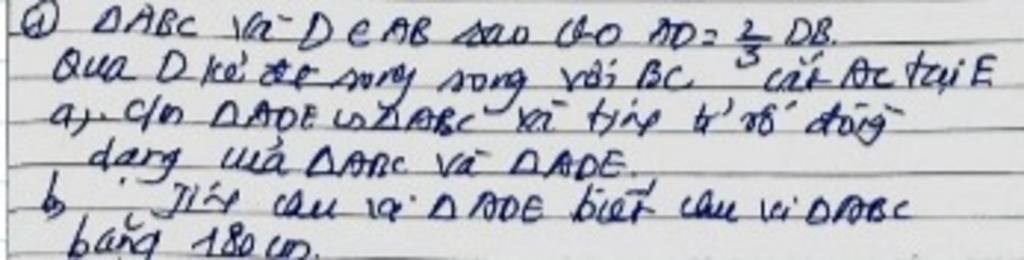 ④ ΔABC và D ∈ AB sao cho AD = 2/3 DB.
Qua D kẻ đt song song với BC cắt AC tại E
a). C/m ΔADE ∽ ΔABC và tính tỉ số đồng
dạng của ΔABC và ΔADE.
b) Tính chu vi ΔADE biết chu vi ΔABC
bằng 180 cm.